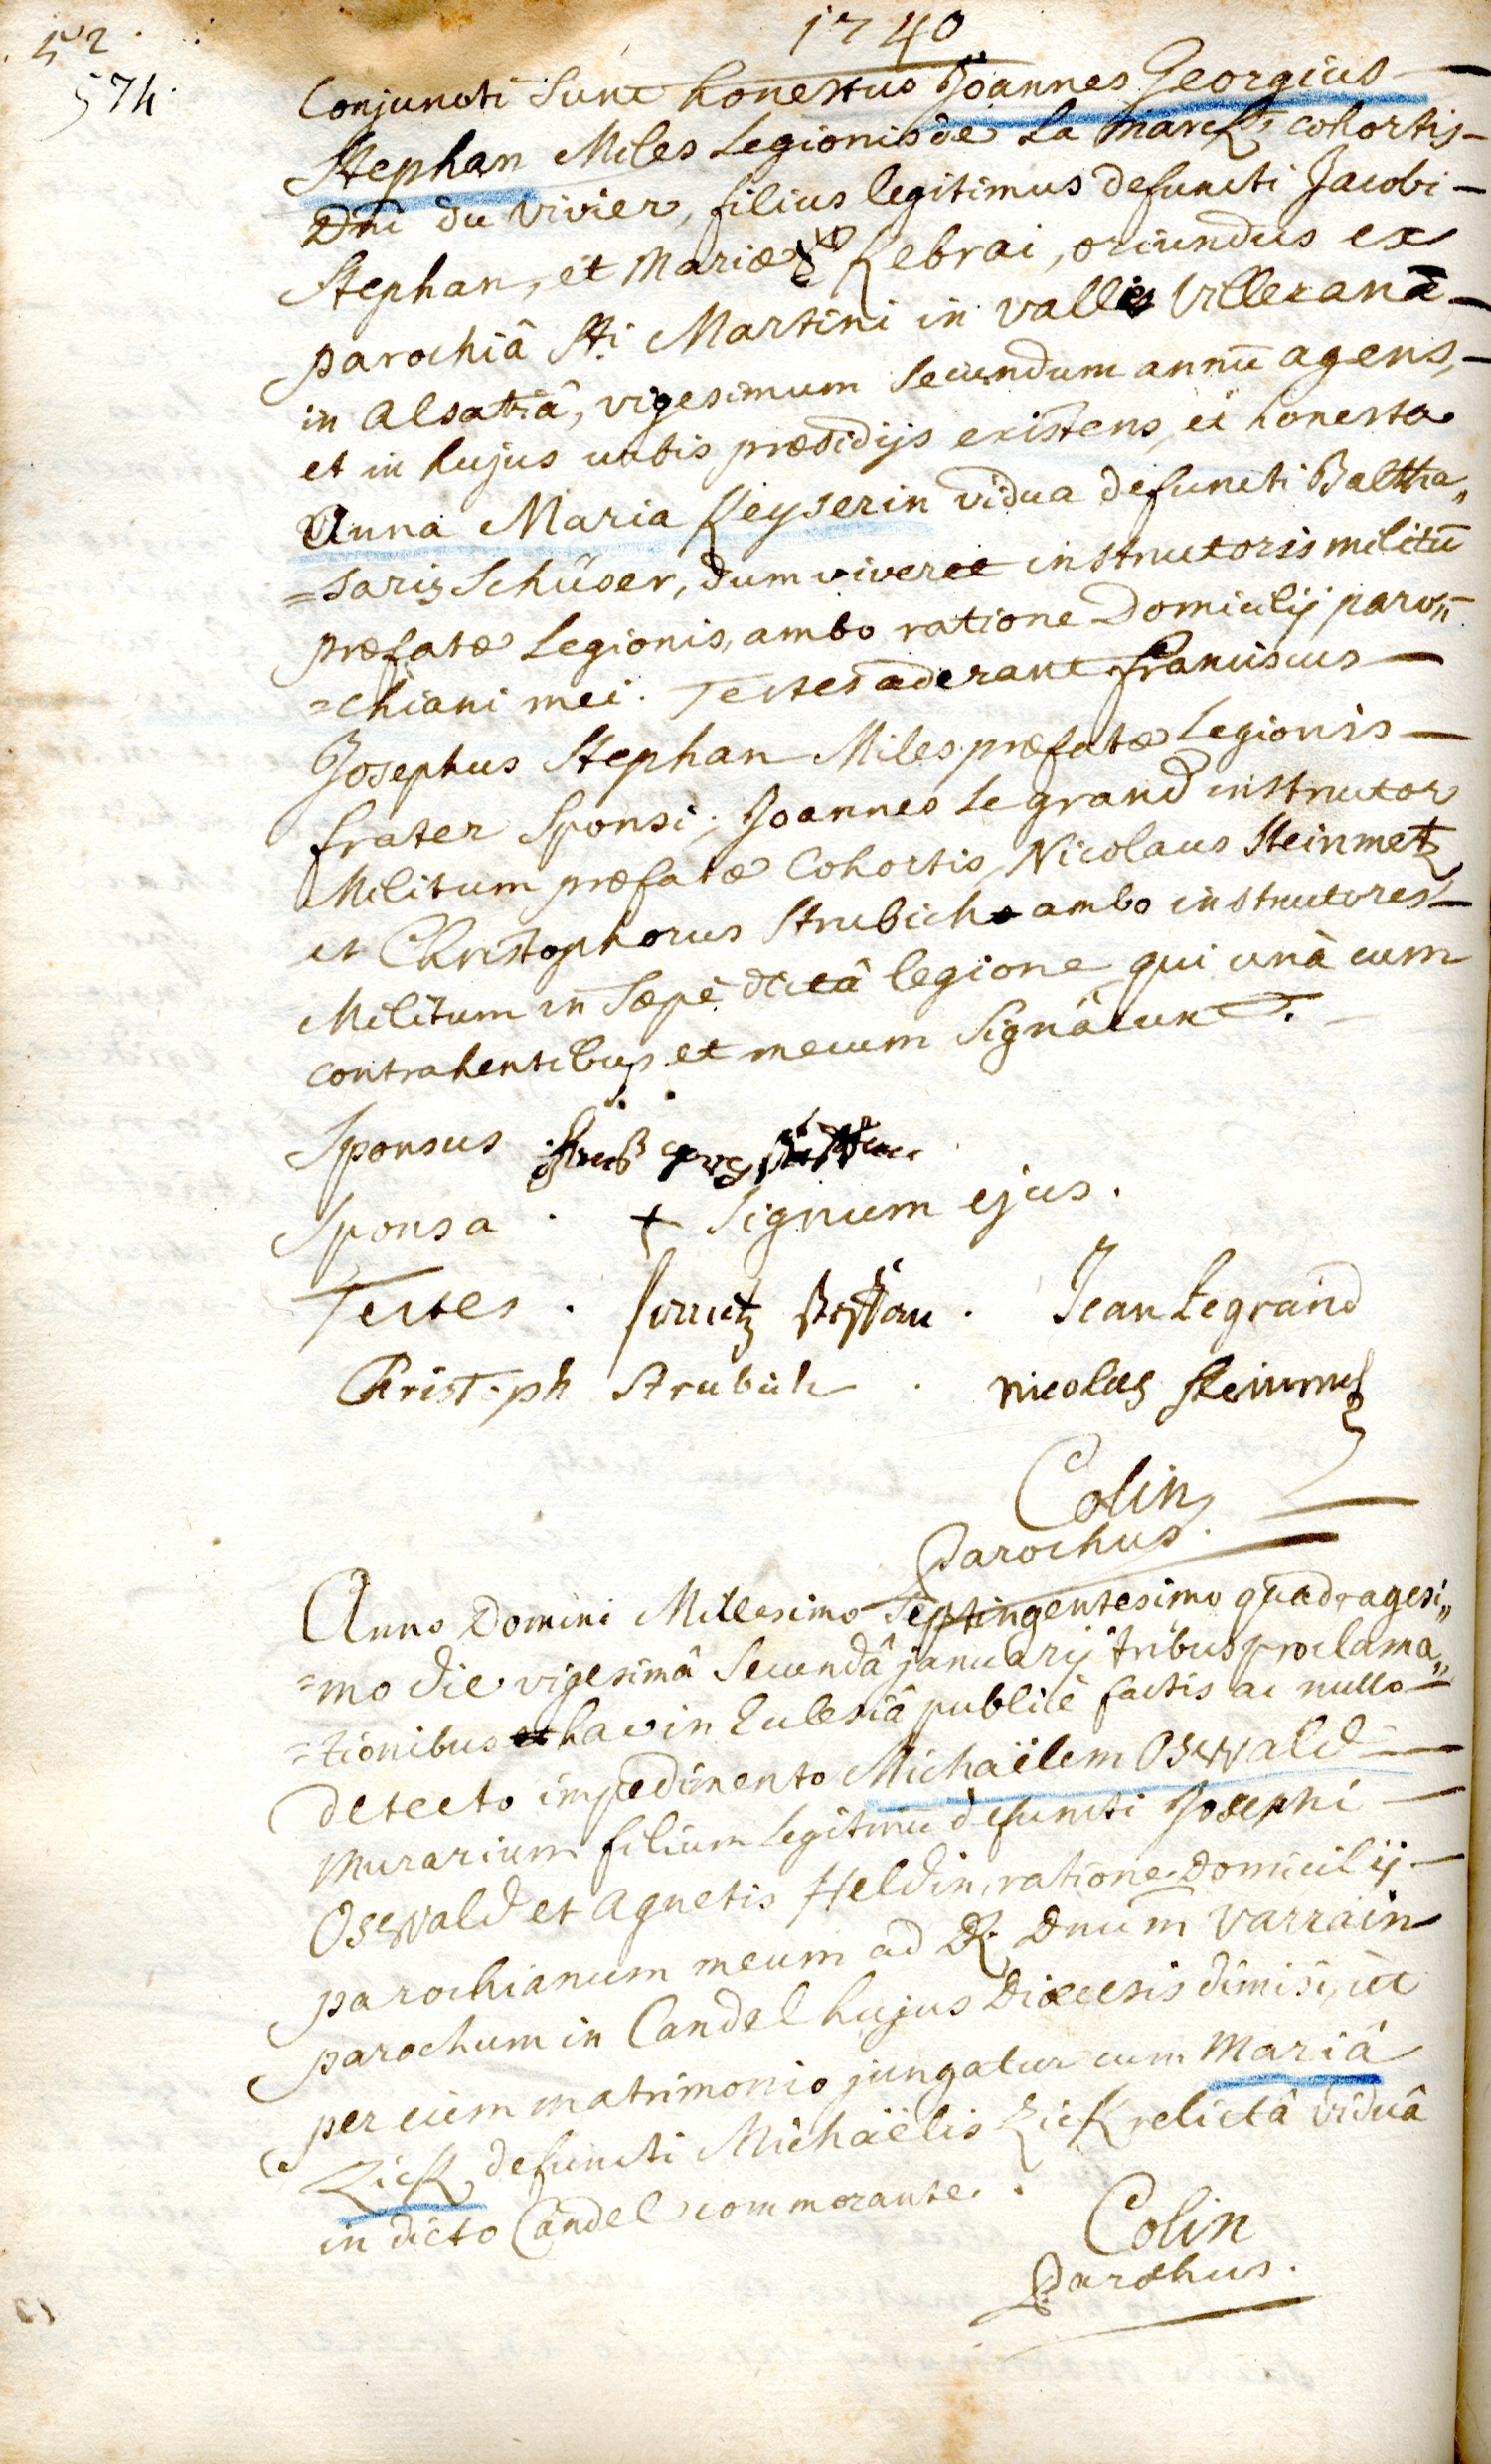 1740
52.
574.
Conjuncti sunt honestus Joannes Georgius
Stephan Miles Legionis de La Marck, cohortis
Dni du Vivier, filius legitimus defuncti Jacobi
Stephan, et Mariæ Kebrai, oriundus ex
parochiâ Sti Martini in valle Villeranâ
in Alsatiâ, vigesimum secundum annū agens,
et in hujus urbis præsidijs existens, et honesta
Anna Maria Keyserin vidua defuncti Baltha„
=saris Schüser, dum viveret instructoris militū
præfatæ Legionis, ambo ratione Domicilij paro„
=chiani mei. Testes aderant Franciscus
Josephus Stephan Miles præfatæ Legionis
frater Sponsi, Joannes Le grand instructor
Militum præfatæ Cohortis, Nicolaus Steinmetz
et Christophorus Strubich ambo instructores
Militum in sæpè dictâ legione qui unà cum
contrahentibus et mecum signârunt.
Sponsus georg
Sponsa. + Signum ejus.
Testes. frantz steffan. Jean Legrand
Christoph Strubich. nicolas steinmetz
Colin
Parochus.
Anno Domini Millesimo Septingentesimo quadragesi„
=mo die vigesimâ secundâ januarij tribus proclama„
=tionibus hac in Ecclesiâ publicè factis ac nullo
detecto impedimento Michaëlem Oswald
murarium filium legitimū defuncti Josephi
Oswald et Agnetis Heldin, ratione Domicilij
parochianum meum ad R. Dnum Varrain
parochum in Candel hujus Diœcesis dimisi, ut
per eum matrimonio jungatur cum Mariâ
Zick, defuncti Michaëlis Zick relictâ viduâ
in dicto Candel commorante.
Colin
Parochus.